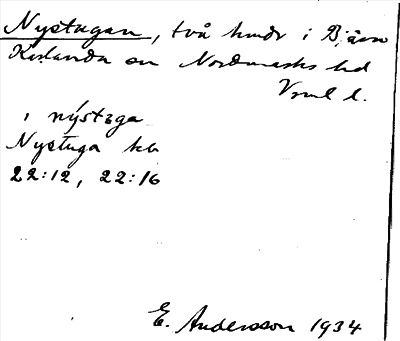 Nystugan, två hmdr i Bjärn
Korlanda sn Nordmarks hd
Vrml l.
i nýstaga
Nystuga kb
22:12, 22:16
E. Andersson 1934